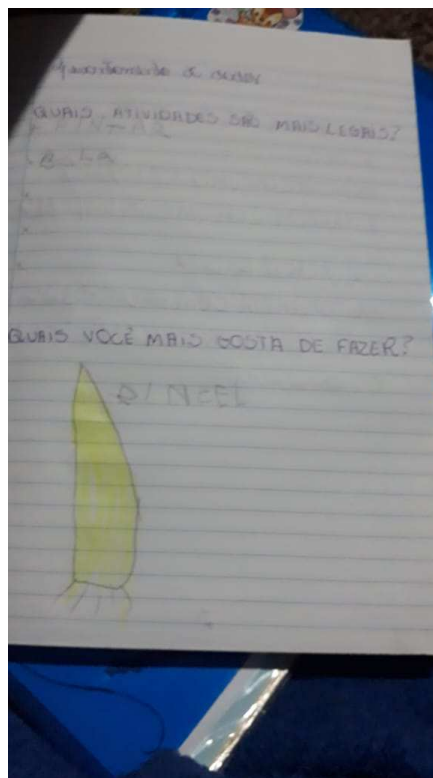 QUAIS ATIVIDADES SÃO MAIS LEGAIS?
PINTAR
QUAIS VOCÊ MAIS GOSTA DE FAZER?
PINCEL